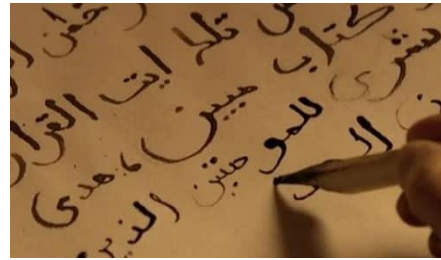 تلك ايت القرا
كتاب مبين هدى
بشرى للمو منين الذين